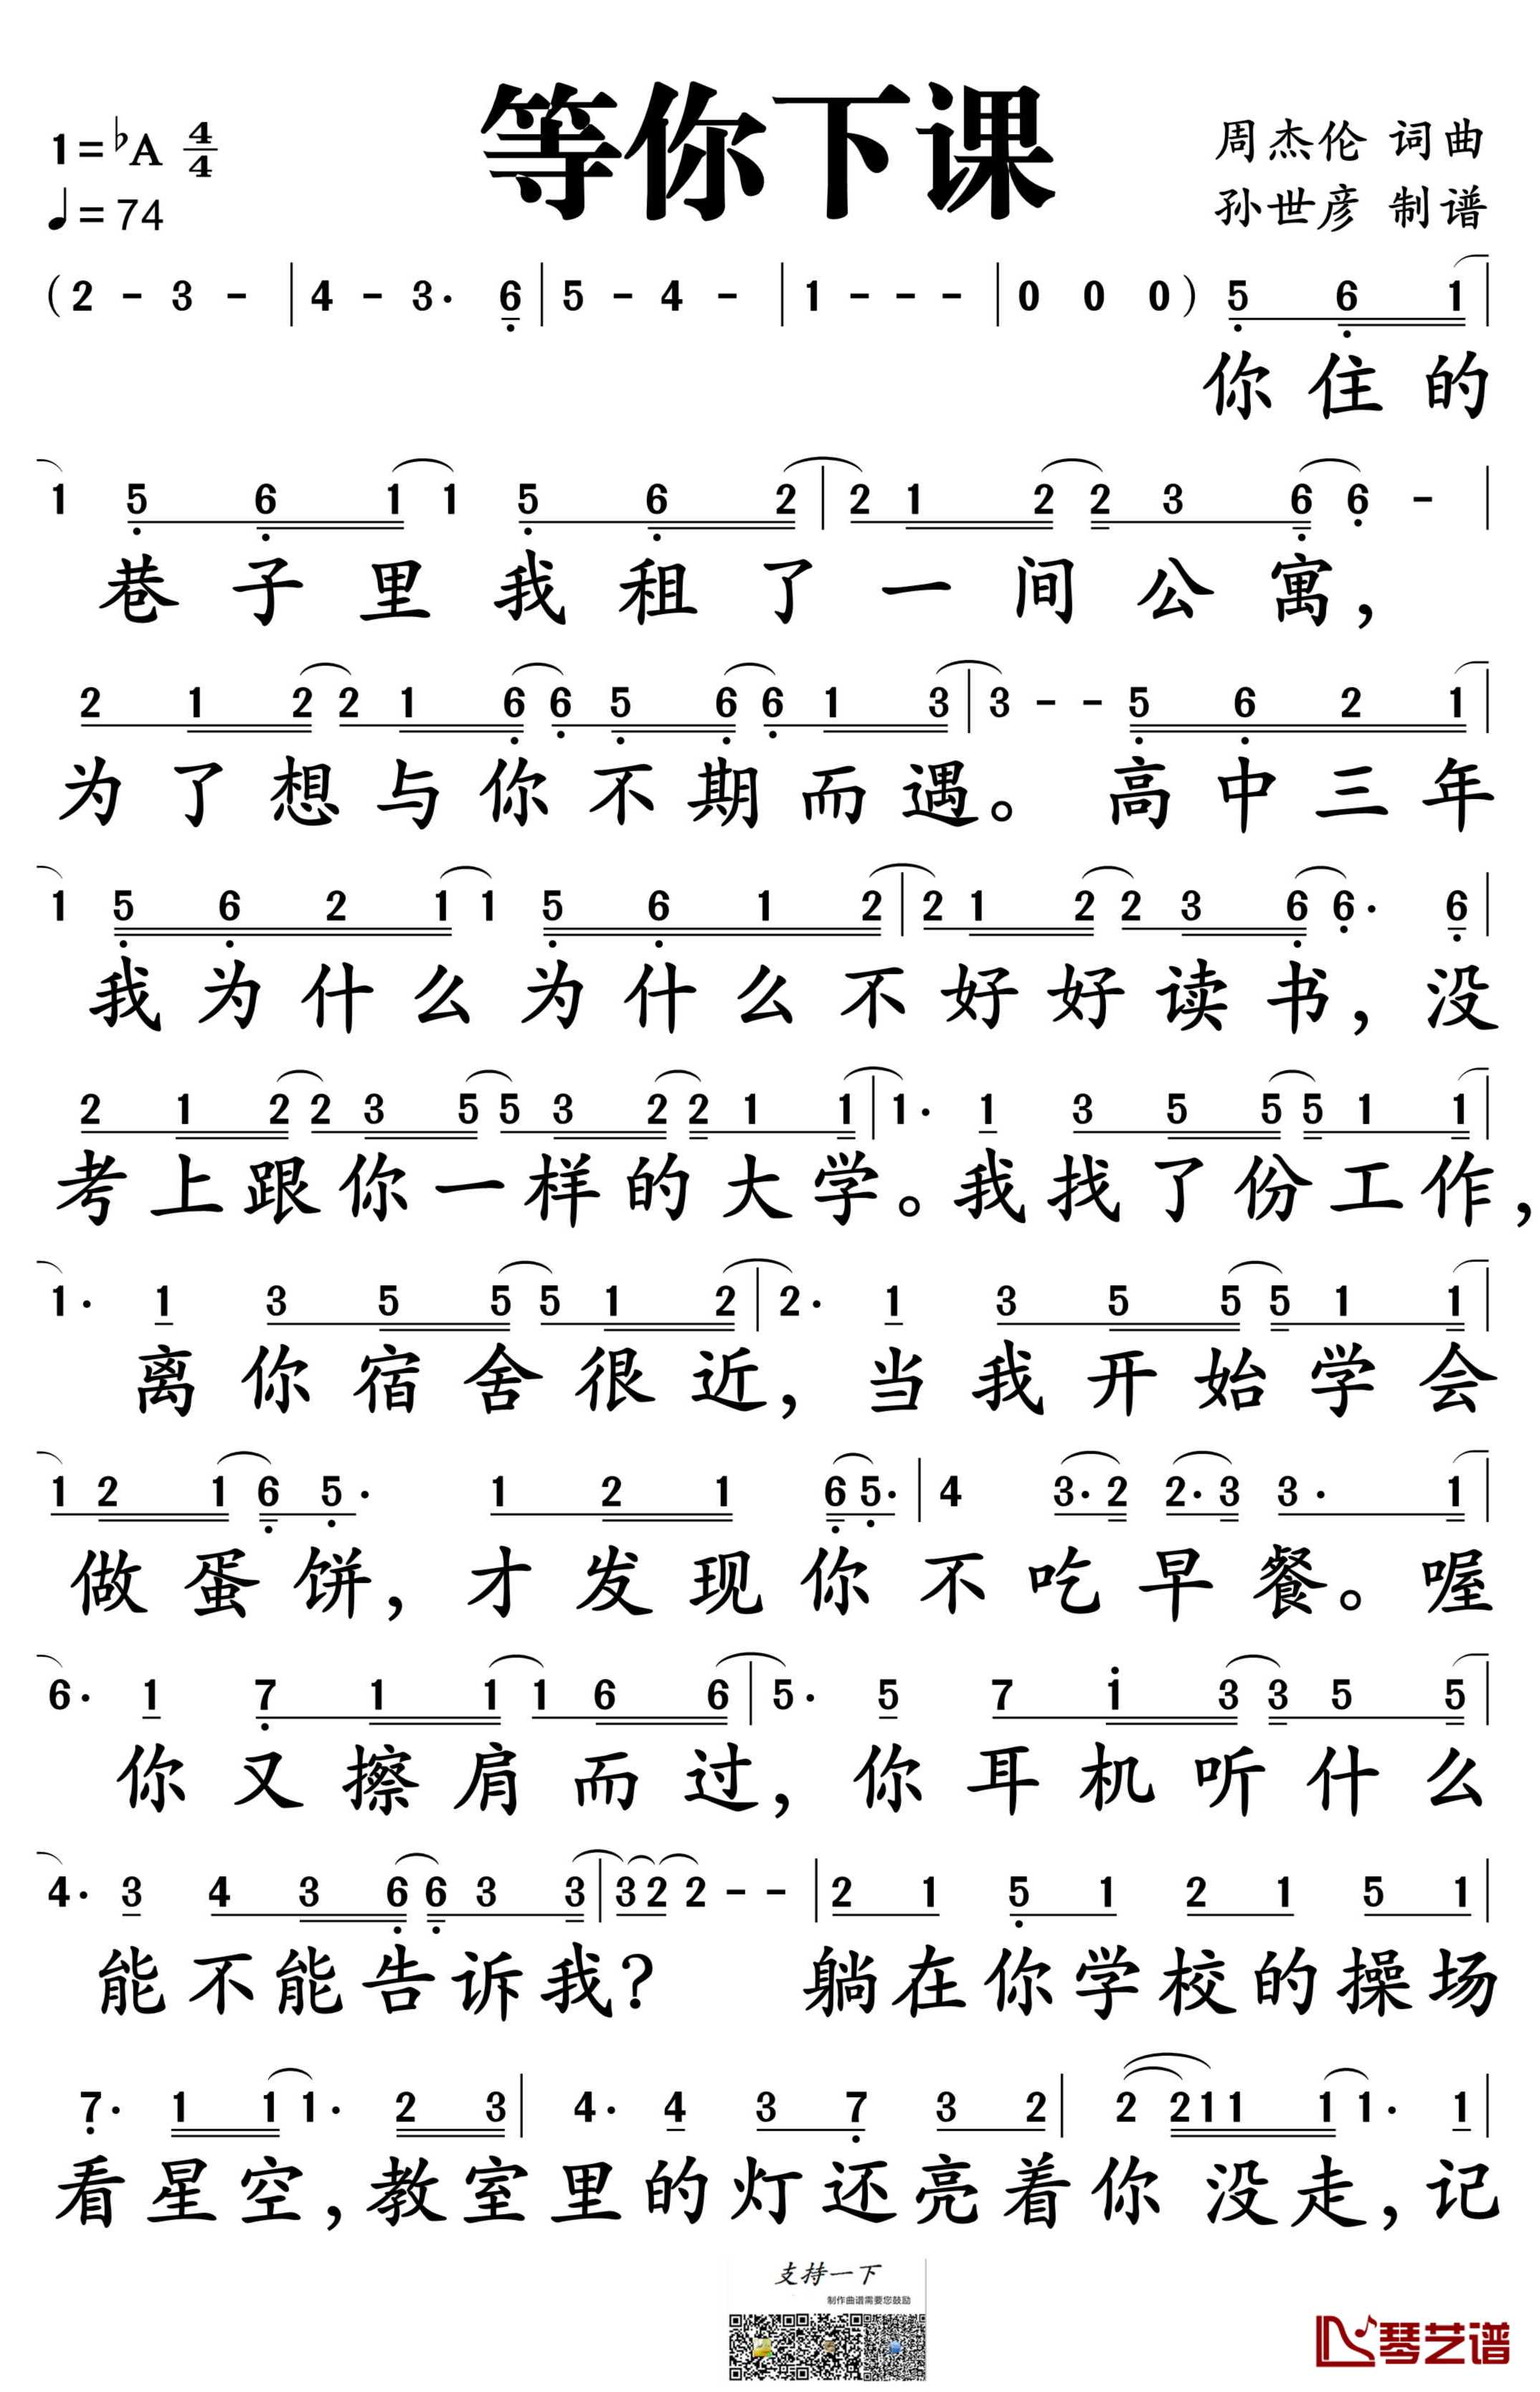 等你下课
1=♭A 4/4
♩=74
周杰伦 词曲
孙世彦 制谱
(2 - 3 - | 4 - 3· 6 | 5 - 4 - | 1 - - - | 0 0 0) 5 6 1 |
你住的
1 5 6 1 1 5 6 2 | 2 1 2 2 3 6 6 - |
巷子里我租了一间公寓，
2 1 2 2 1 6 6 5 6 6 1 3 | 3 - - 5 6 2 1 |
为了想与你不期而遇。高中三年
1 5 6 2 1 1 5 6 1 2 | 2 1 2 2 3 6 6· 6 |
我为什么为什么不好好读书，没
2 1 2 2 3 5 5 3 2 2 1 1 | 1· 1 3 5 5 5 1 1 |
考上跟你一样的大学。我找了份工作，
1· 1 3 5 5 5 1 2 | 2· 1 3 5 5 5 1 1 |
离你宿舍很近，当我开始学会
1 2 1 6 5· 1 2 1 6 5· | 4 3· 2 2· 3 3· 1 |
做蛋饼，才发现你不吃早餐。喔
6· 1 7 1 1 1 6 6 | 5· 5 7 i 3 3 5 5 |
你又擦肩而过，你耳机听什么
4· 3 4 3 6 6 3 3 | 3 2 2 - - | 2 1 5 1 2 1 5 1 |
能不能告诉我？躺在你学校的操场
7· 1 1 1· 2 3 | 4· 4 3 7 3 2 | 2 2 1 1 1 1· 1 |
看星空，教室里的灯还亮着你没走，记
支持一下
制作曲谱需要您鼓励
琴艺谱